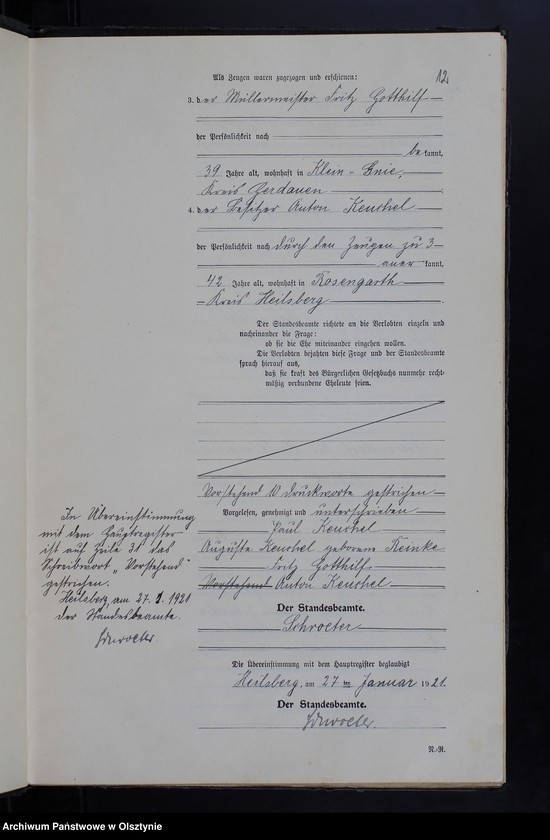 12
Als Zeugen waren zugezogen und erschienen:
3. der Müllermeister Fritz Gotthilf
der Persönlichkeit nach
bekannt,
39 Jahre alt, wohnhaft in Klein-Gnie,
Kreis Gerdauen
4. der Besitzer Anton Keuchel
der Persönlichkeit nach durch den Zeugen zu 3
anerkannt,
42 Jahre alt, wohnhaft in Rosengarth
Kreis Heilsberg.
Der Standesbeamte richtete an die Verlobten einzeln und
nacheinander die Frage:
ob sie die Ehe miteinander eingehen wollen.
Die Verlobten bejahten diese Frage und der Standesbeamte
sprach hierauf aus,
daß sie kraft des Bürgerlichen Gesetzbuchs nunmehr recht-
mäßig verbundene Eheleute seien.
Vorstehend 10 Druckworte gestrichen
Vorgelesen, genehmigt und unterschrieben
Paul Keuchel
Auguste Keuchel geborene Reinke
Fritz Gotthilf
Vorstehend Anton Keuchel
Der Standesbeamte.
Schroeter
In Übereinstimmung
mit dem Hauptregister
ist auf Zeile 31 das
Schreibwort „Vorstehend"
gestrichen.
Heilsberg, am 27. 1. 1921
der Standesbeamte.
Schroeter.
Die Übereinstimmung mit dem Hauptregister beglaubigt
Heilsberg, am 27ten Januar 1921.
Der Standesbeamte.
Schroeter.
N.-R.
Archiwum Państwowe w Olsztynie